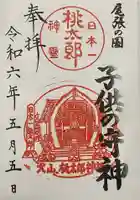 尾張の国
子供の守神
日本一
桃太郎
神璽
奉拝
令和六年五月五日
犬山 桃太郎神社